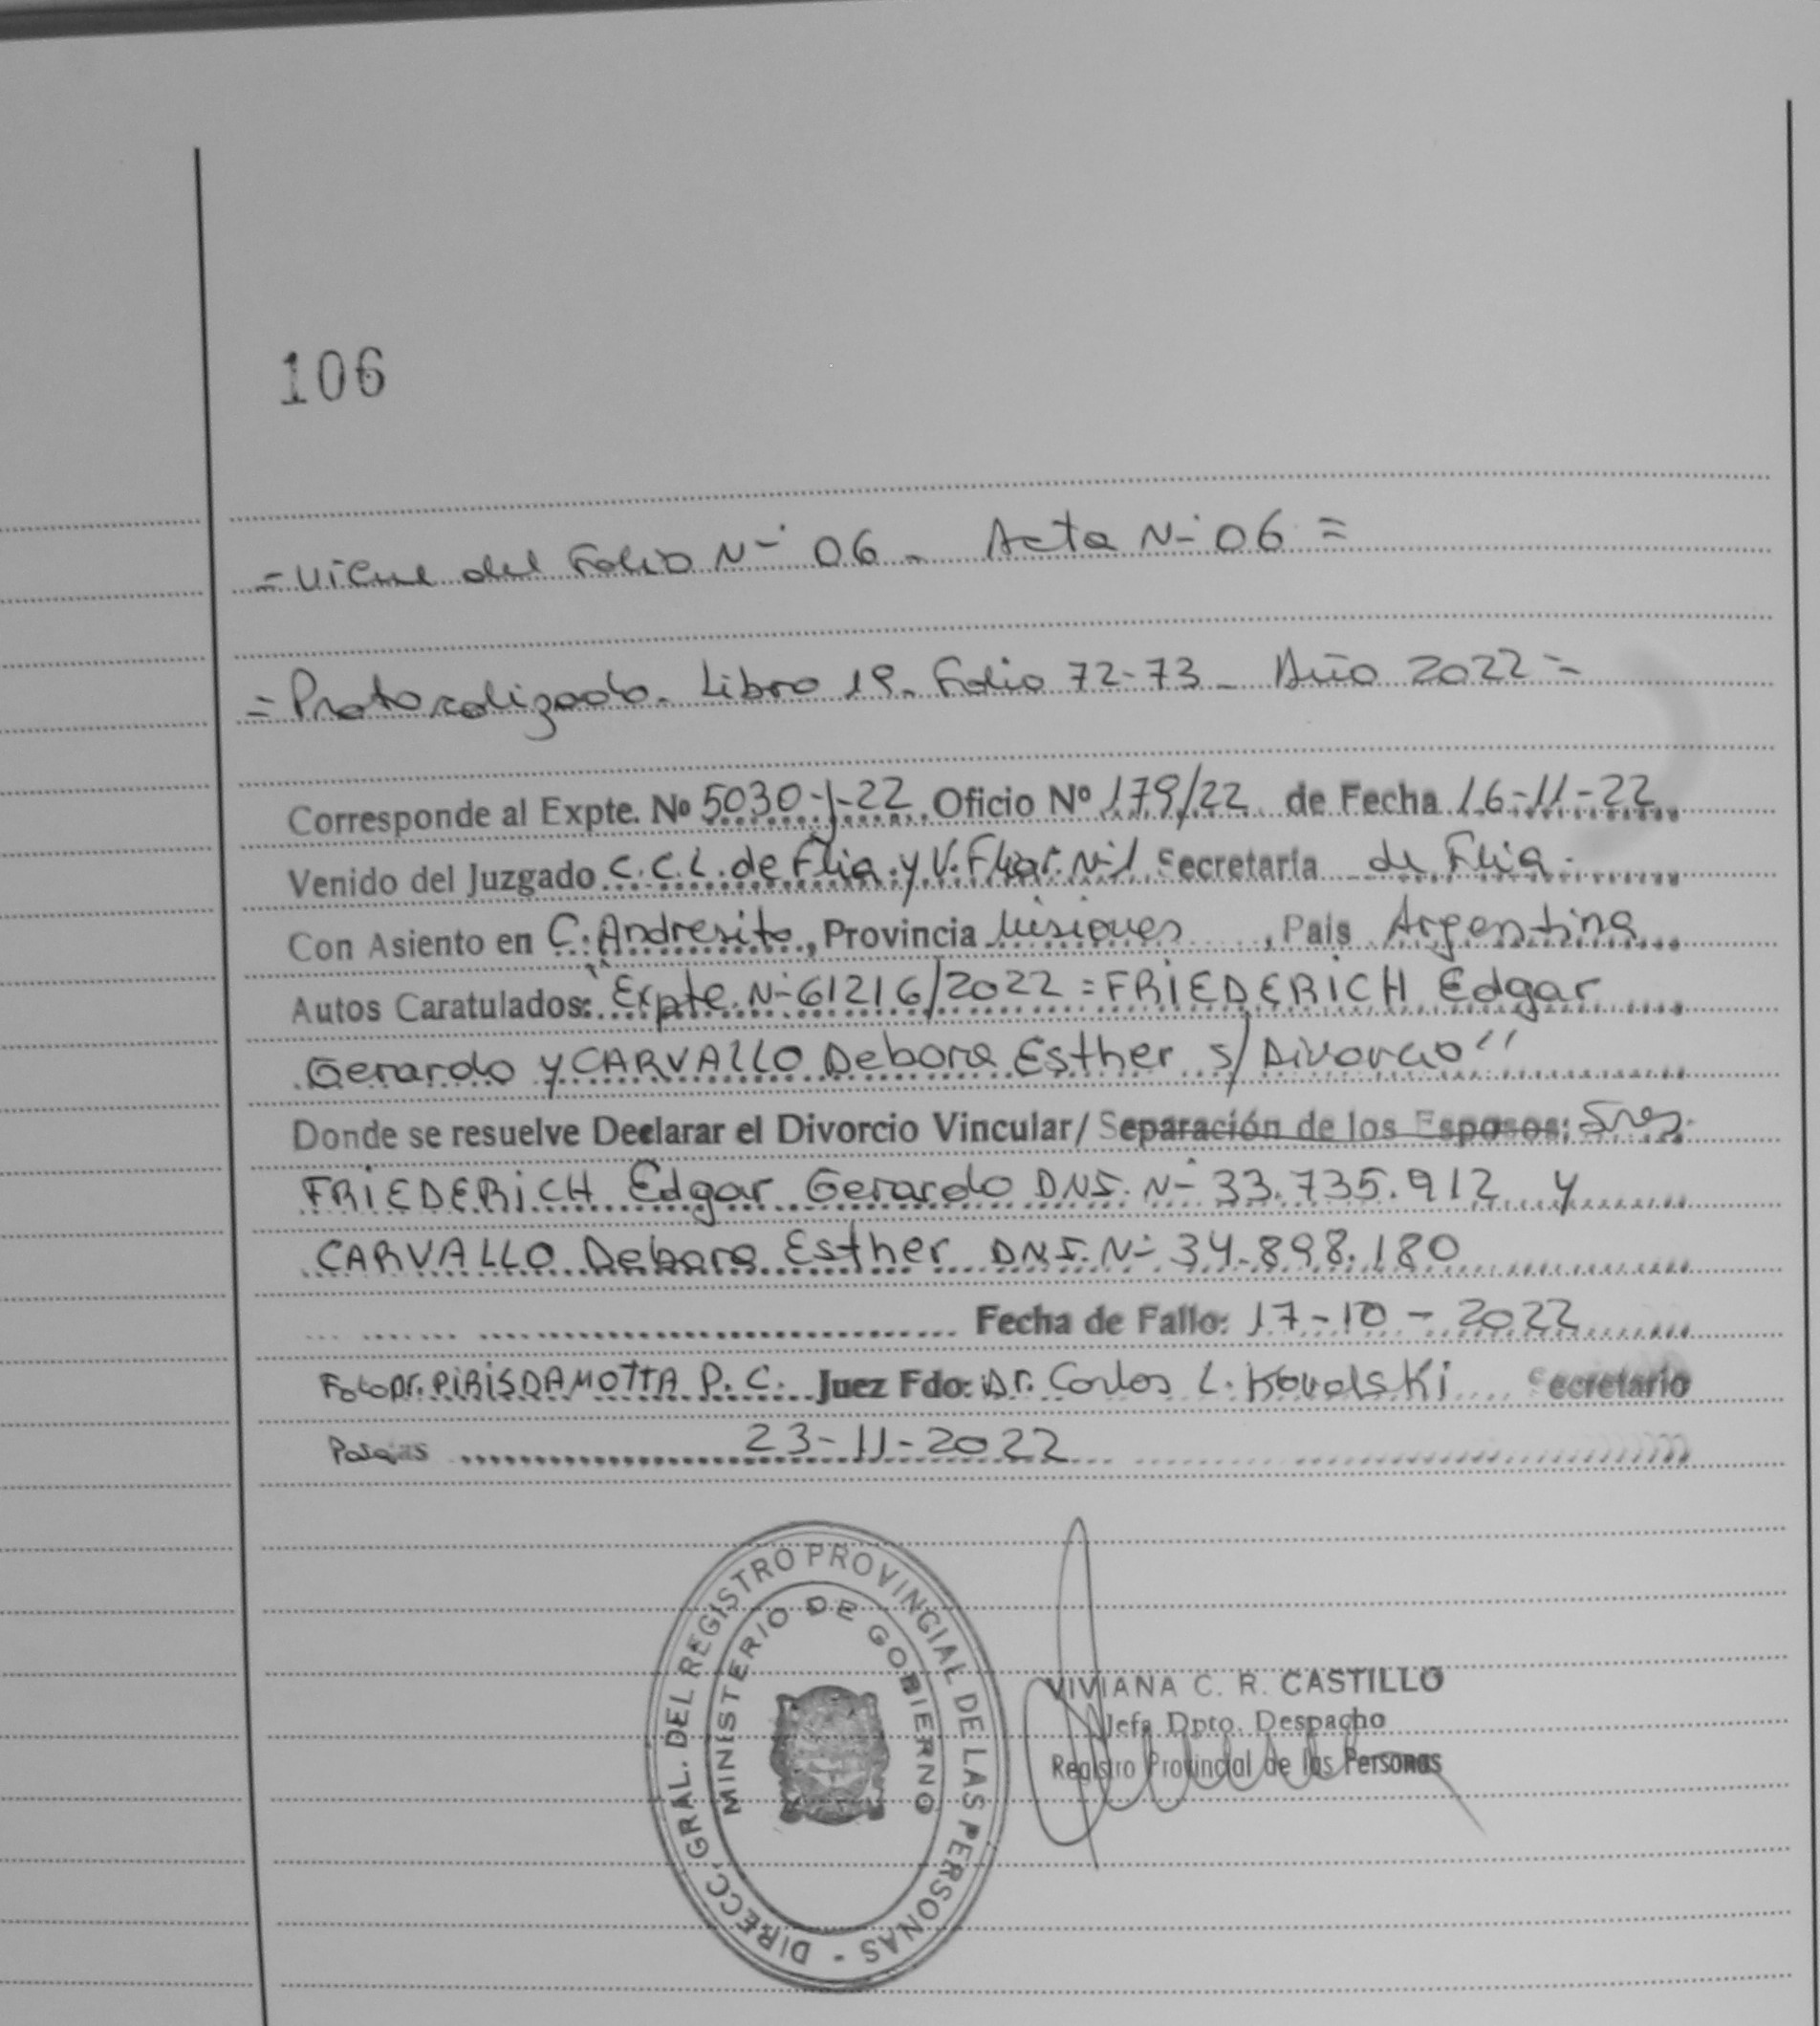 106
= Viene del Folio N° 06 - Acta N° 06 =
= Protocolizado. Libro 19. Folio 72-73 - Año 2022 =
Corresponde al Expte. Nº 5030-J-22 Oficio Nº 179/22 de Fecha 16-11-22
Venido del Juzgado C.C.L. de Flia. y V. Fliar. N°1 Secretaría de Flia.
Con Asiento en C. Andresito, Provincia Misiones, País Argentina
Autos Caratulados: "Expte. N° 61216/2022 = FRIEDERICH Edgar
Gerardo y CARVALLO Debora Esther s/ Divorcio"
Donde se resuelve Declarar el Divorcio Vincular/ Separación de los Esposos: Sres.
FRIEDERICH Edgar Gerardo DNI. N° 33.735.912 y
CARVALLO Debora Esther DNI. N° 34.898.180
Fecha de Fallo: 17-10-2022
Fdo Dr. PIRIS DA MOTTA P. C. Juez Fdo: Dr. Carlos L. Kovalski Secretario
Posadas 23-11-2022
DIRECC. GRAL. DEL REGISTRO PROVINCIAL DE LAS PERSONAS -
MINISTERIO DE GOBIERNO
VIVIANA C. R. CASTILLO
Jefa Dpto. Despacho
Registro Provincial de las Personas